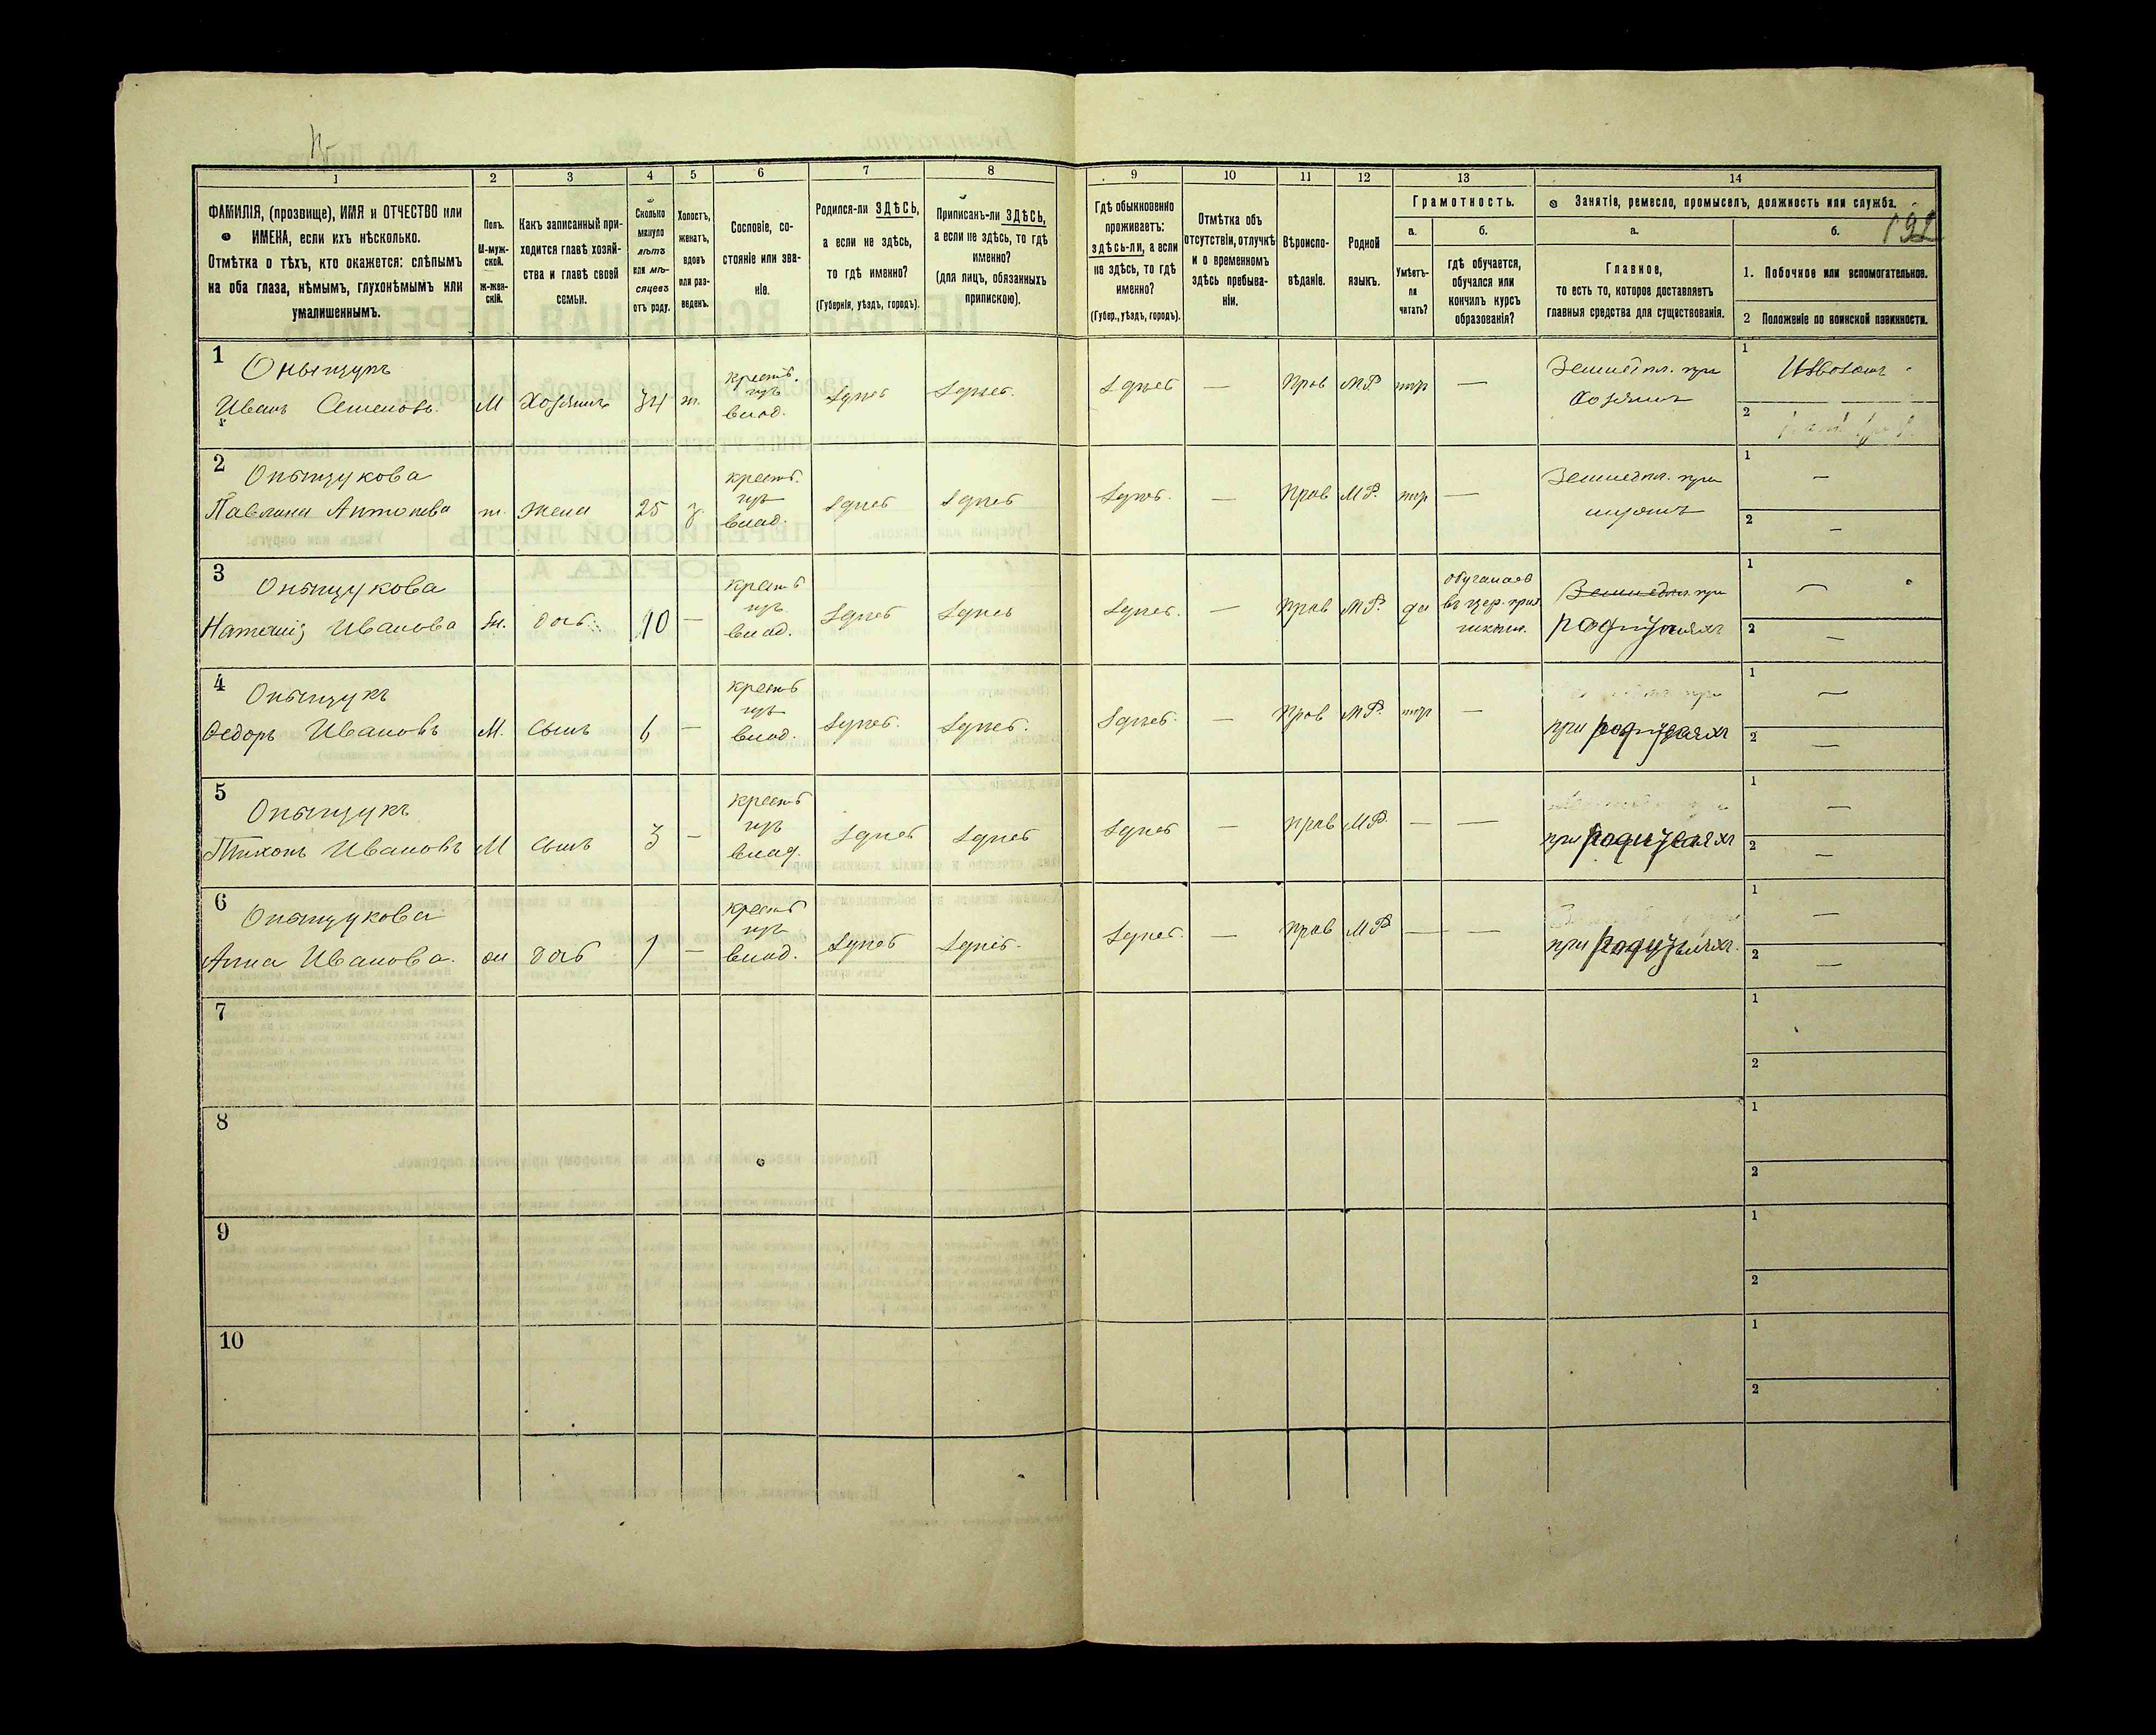 192
1
2
3
4
5
6
7
8
9
10
11
12
13
14
ФАМИЛІЯ, (прозвище), ИМЯ и ОТЧЕСТВО или
ИМЕНА, если ихъ нѣсколько.
Отмѣтка о тѣхъ, кто окажется: слѣпымъ
на оба глаза, нѣмымъ, глухонѣмымъ или
умалишеннымъ.
Полъ.
М-муж-
ской.
Ж-жен-
скій.
Какъ записанный при-
ходится главѣ хозяй-
ства и главѣ своей
семьи.
Сколько
минуло
лѣтъ
или мѣ-
сяцевъ
отъ роду.
Холостъ,
женатъ,
вдовъ
или раз-
веденъ.
Сословіе, со-
стояніе или зва-
ніе.
Родился-ли ЗДѢСЬ,
а если не здѣсь,
то гдѣ именно?
(Губернія, уѣздъ, городъ).
Приписанъ-ли ЗДѢСЬ,
а если не здѣсь, то гдѣ
именно?
(для лицъ, обязанныхъ
припискою).
Гдѣ обыкновенно
проживаетъ:
здѣсь-ли, а если
не здѣсь, то гдѣ
именно?
(Губер., уѣздъ, городъ).
Отмѣтка объ
отсутствіи, отлучкѣ
и о временномъ
здѣсь пребыва-
ніи.
Вѣроиспо-
вѣданіе.
Родной
языкъ.
Грамотность.
а.
Умѣетъ-
ли
читать?
б.
гдѣ обучается,
обучался или
кончилъ курсъ
образованія?
Занятіе, ремесло, промыселъ, должность или служба.
а.
Главное,
то есть то, которое доставляетъ
главныя средства для существованія.
б.
1. Побочное или вспомогательное.
2 Положеніе по воинской повинности.
1
Иванъ Семеновъ. М Хозяинъ 34 ж. крестъ. изъ влад. здѣсь здѣсь. здѣсь — прав МР нгр — Земледѣл. при хозяинъ
1
2
2
Павлина Антонова ж. жена 25 з. крестъ. изъ влад. здѣсь здѣсь здѣсь. — прав МР. нгр — Земледѣл. при
1 —
2 —
3
Наталія Иванова ж. дочь 10 — крестъ изъ влад. здѣсь здѣсь здѣсь. — прав МР. да обучалась въ цер. прих. школѣ. Земледѣл. при родителяхъ
1 —
2 —
4
Федоръ Ивановъ М. сынъ 6 — крестъ изъ влад. здѣсь. здѣсь. здѣсь. — прав МР. нгр — при родителяхъ
1 —
2 —
5
Тихонъ Ивановъ М сынъ 3 — крестъ изъ влад. здѣсь здѣсь здѣсь — прав МР. — — при родителяхъ
1 —
2 —
6
Анна Иванова. ж дочь 1 — крестъ изъ влад. здѣсь здѣсь. здѣсь. — прав МР — — при родителяхъ.
1 —
2 —
7
1
2
8
1
2
9
1
2
10
1
2